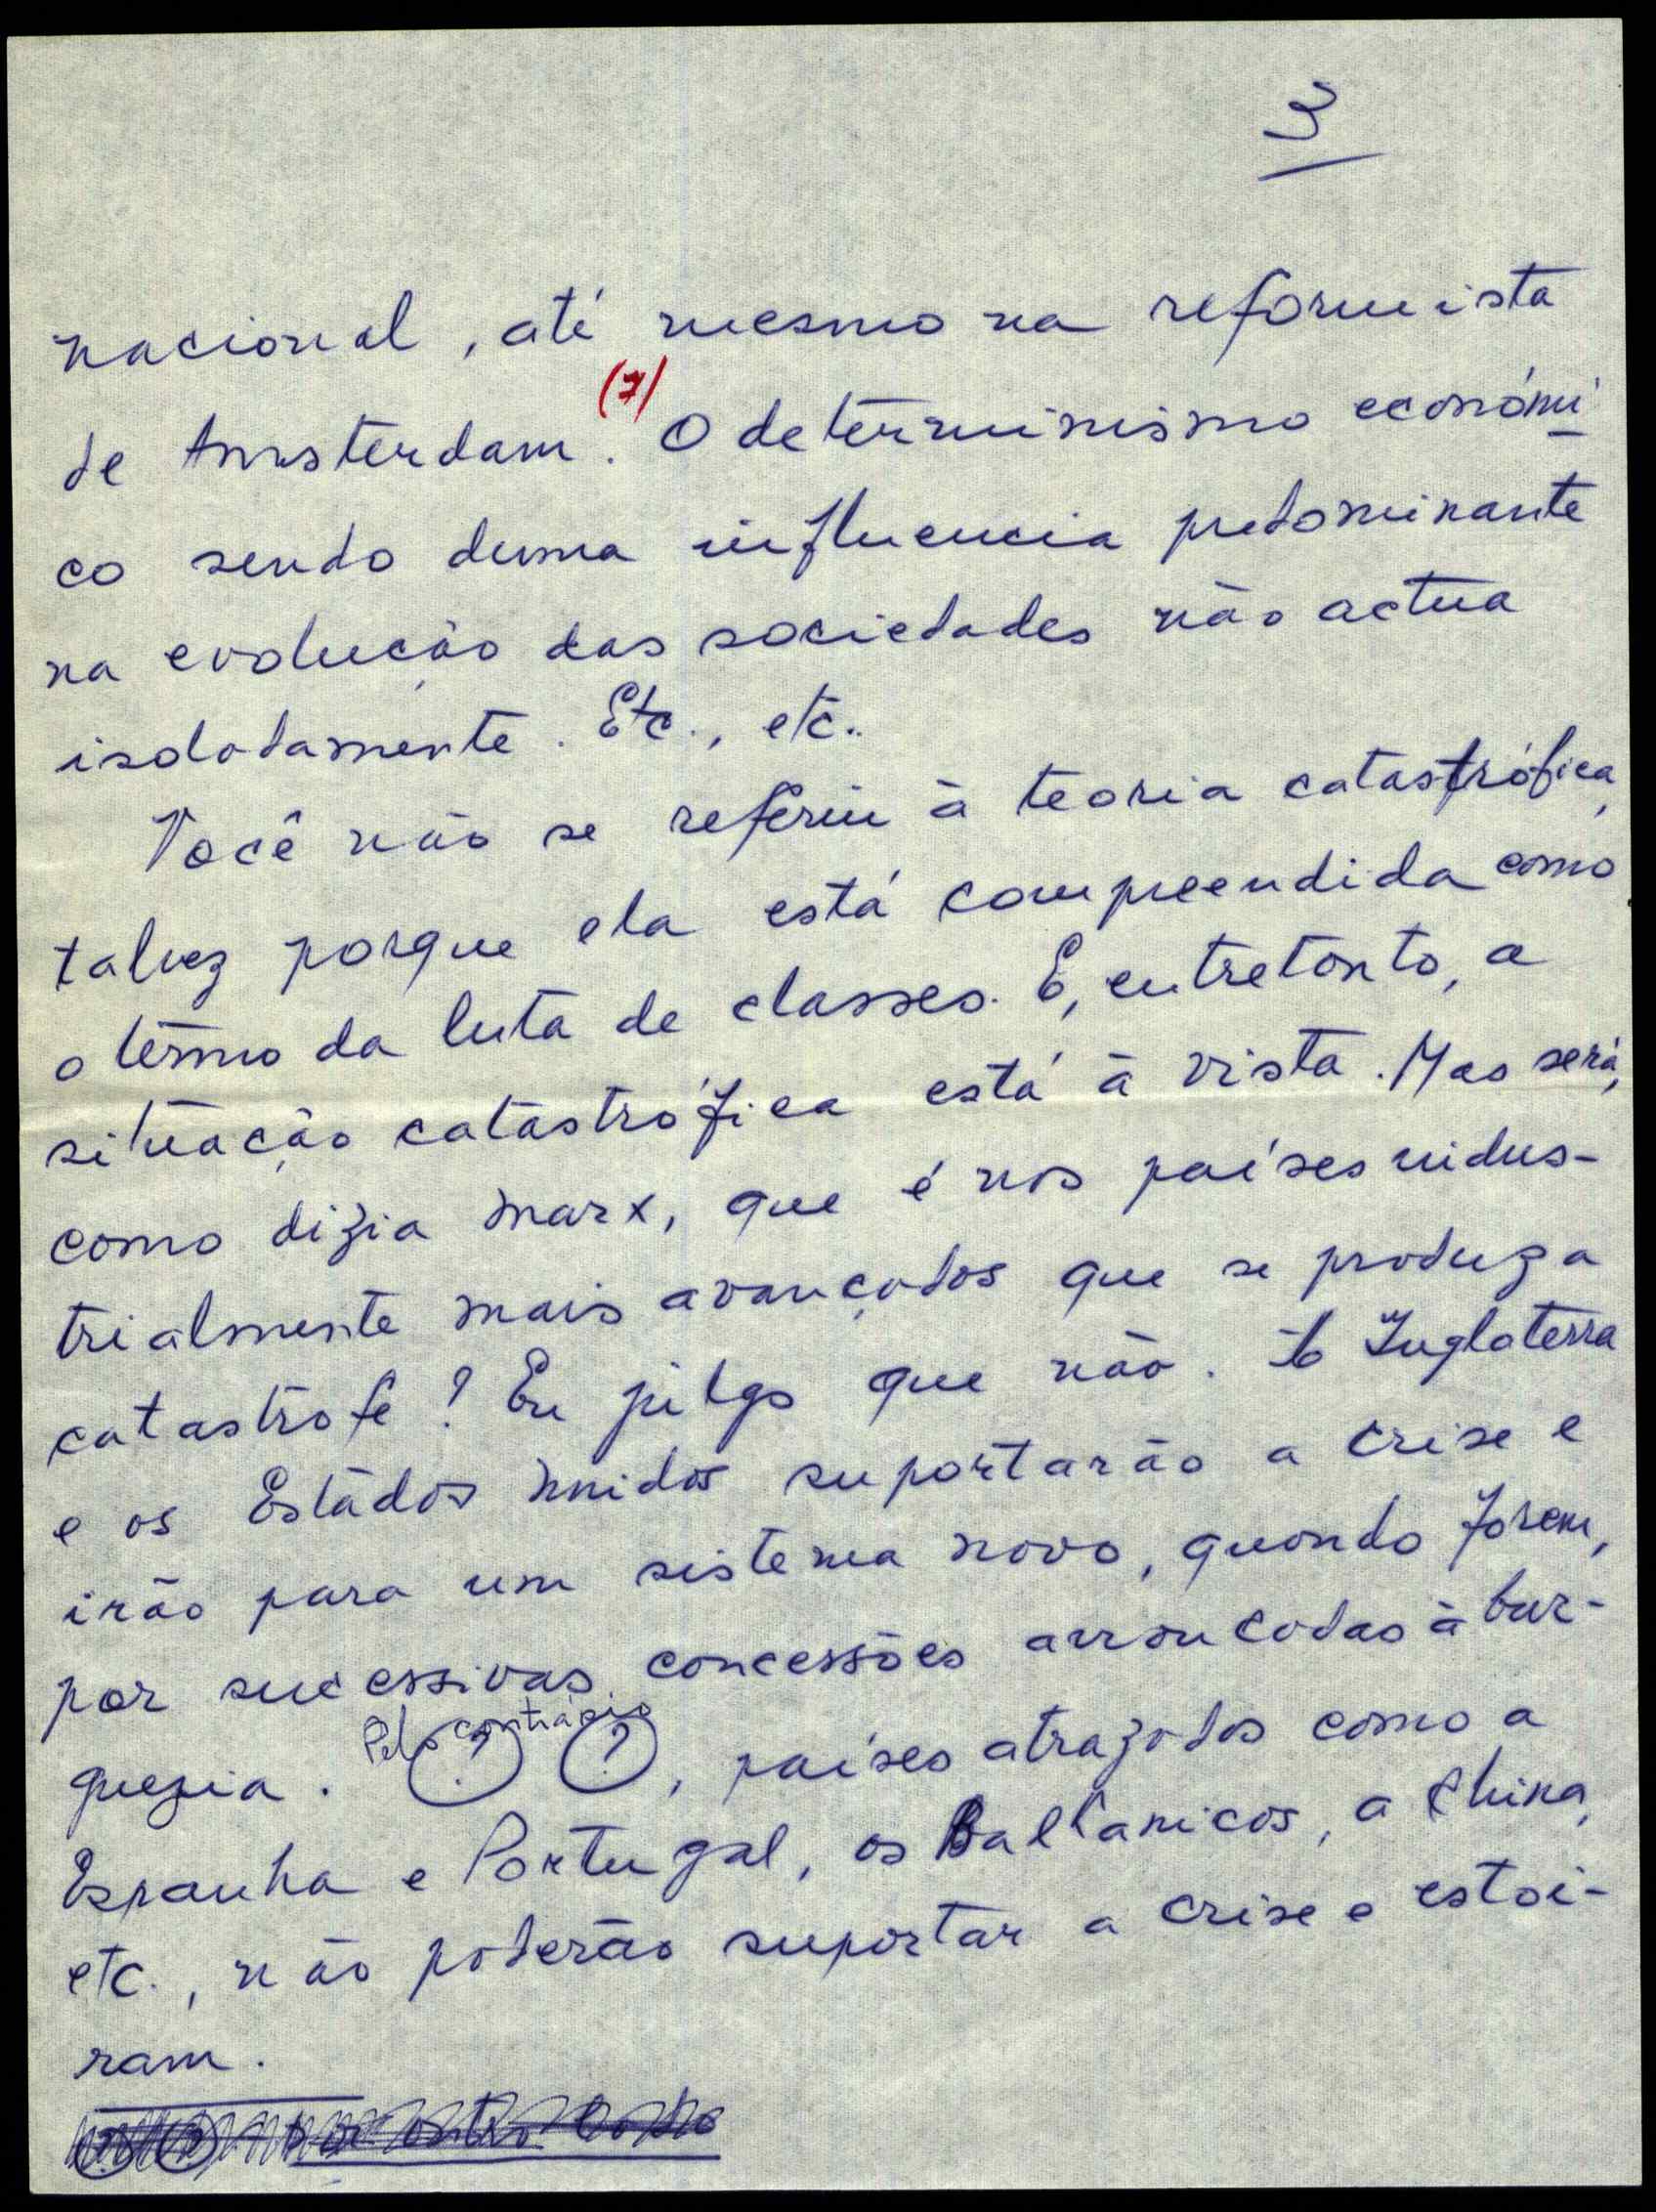 3
nacional, até mesmo na reformista
de Amsterdam. (7) O determinismo económi
co sendo duma influencia predominante
na evolução das sociedades não actua
isoladamente. Etc., etc..
Você não se referiu à teoria catastrófica,
talvez porque ela está compreendida como
o têrmo da luta de classes. E, entretanto, a
situação catastrófica está à vista. Mas será,
como dizia Marx, que é nos países indus-
trialmente mais avançados que se produza
catastrofe? Eu julgo que não. A Inglaterra
e os Estados Unidos suportarão a crise e
irão para um sistema novo, quando forem,
por sucessivas concessões arrancadas à bur-
Pelo contrário
guezia. (?) (?), países atrazados como a
Espanha e Portugal, os Balkanicos, a China,
etc., não poderão suportar a crise e estoi-
ram.
(?) (?) Por outro lado